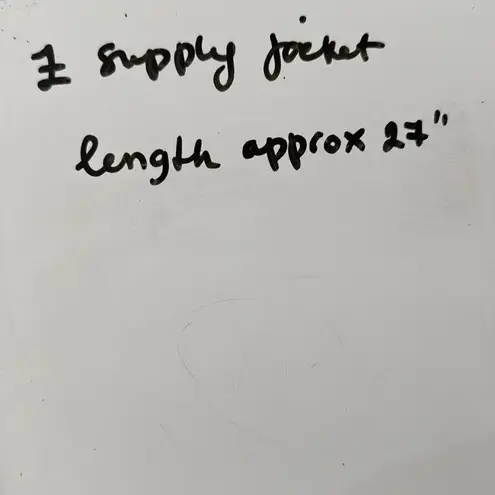 Z supply jacket
length approx 27"